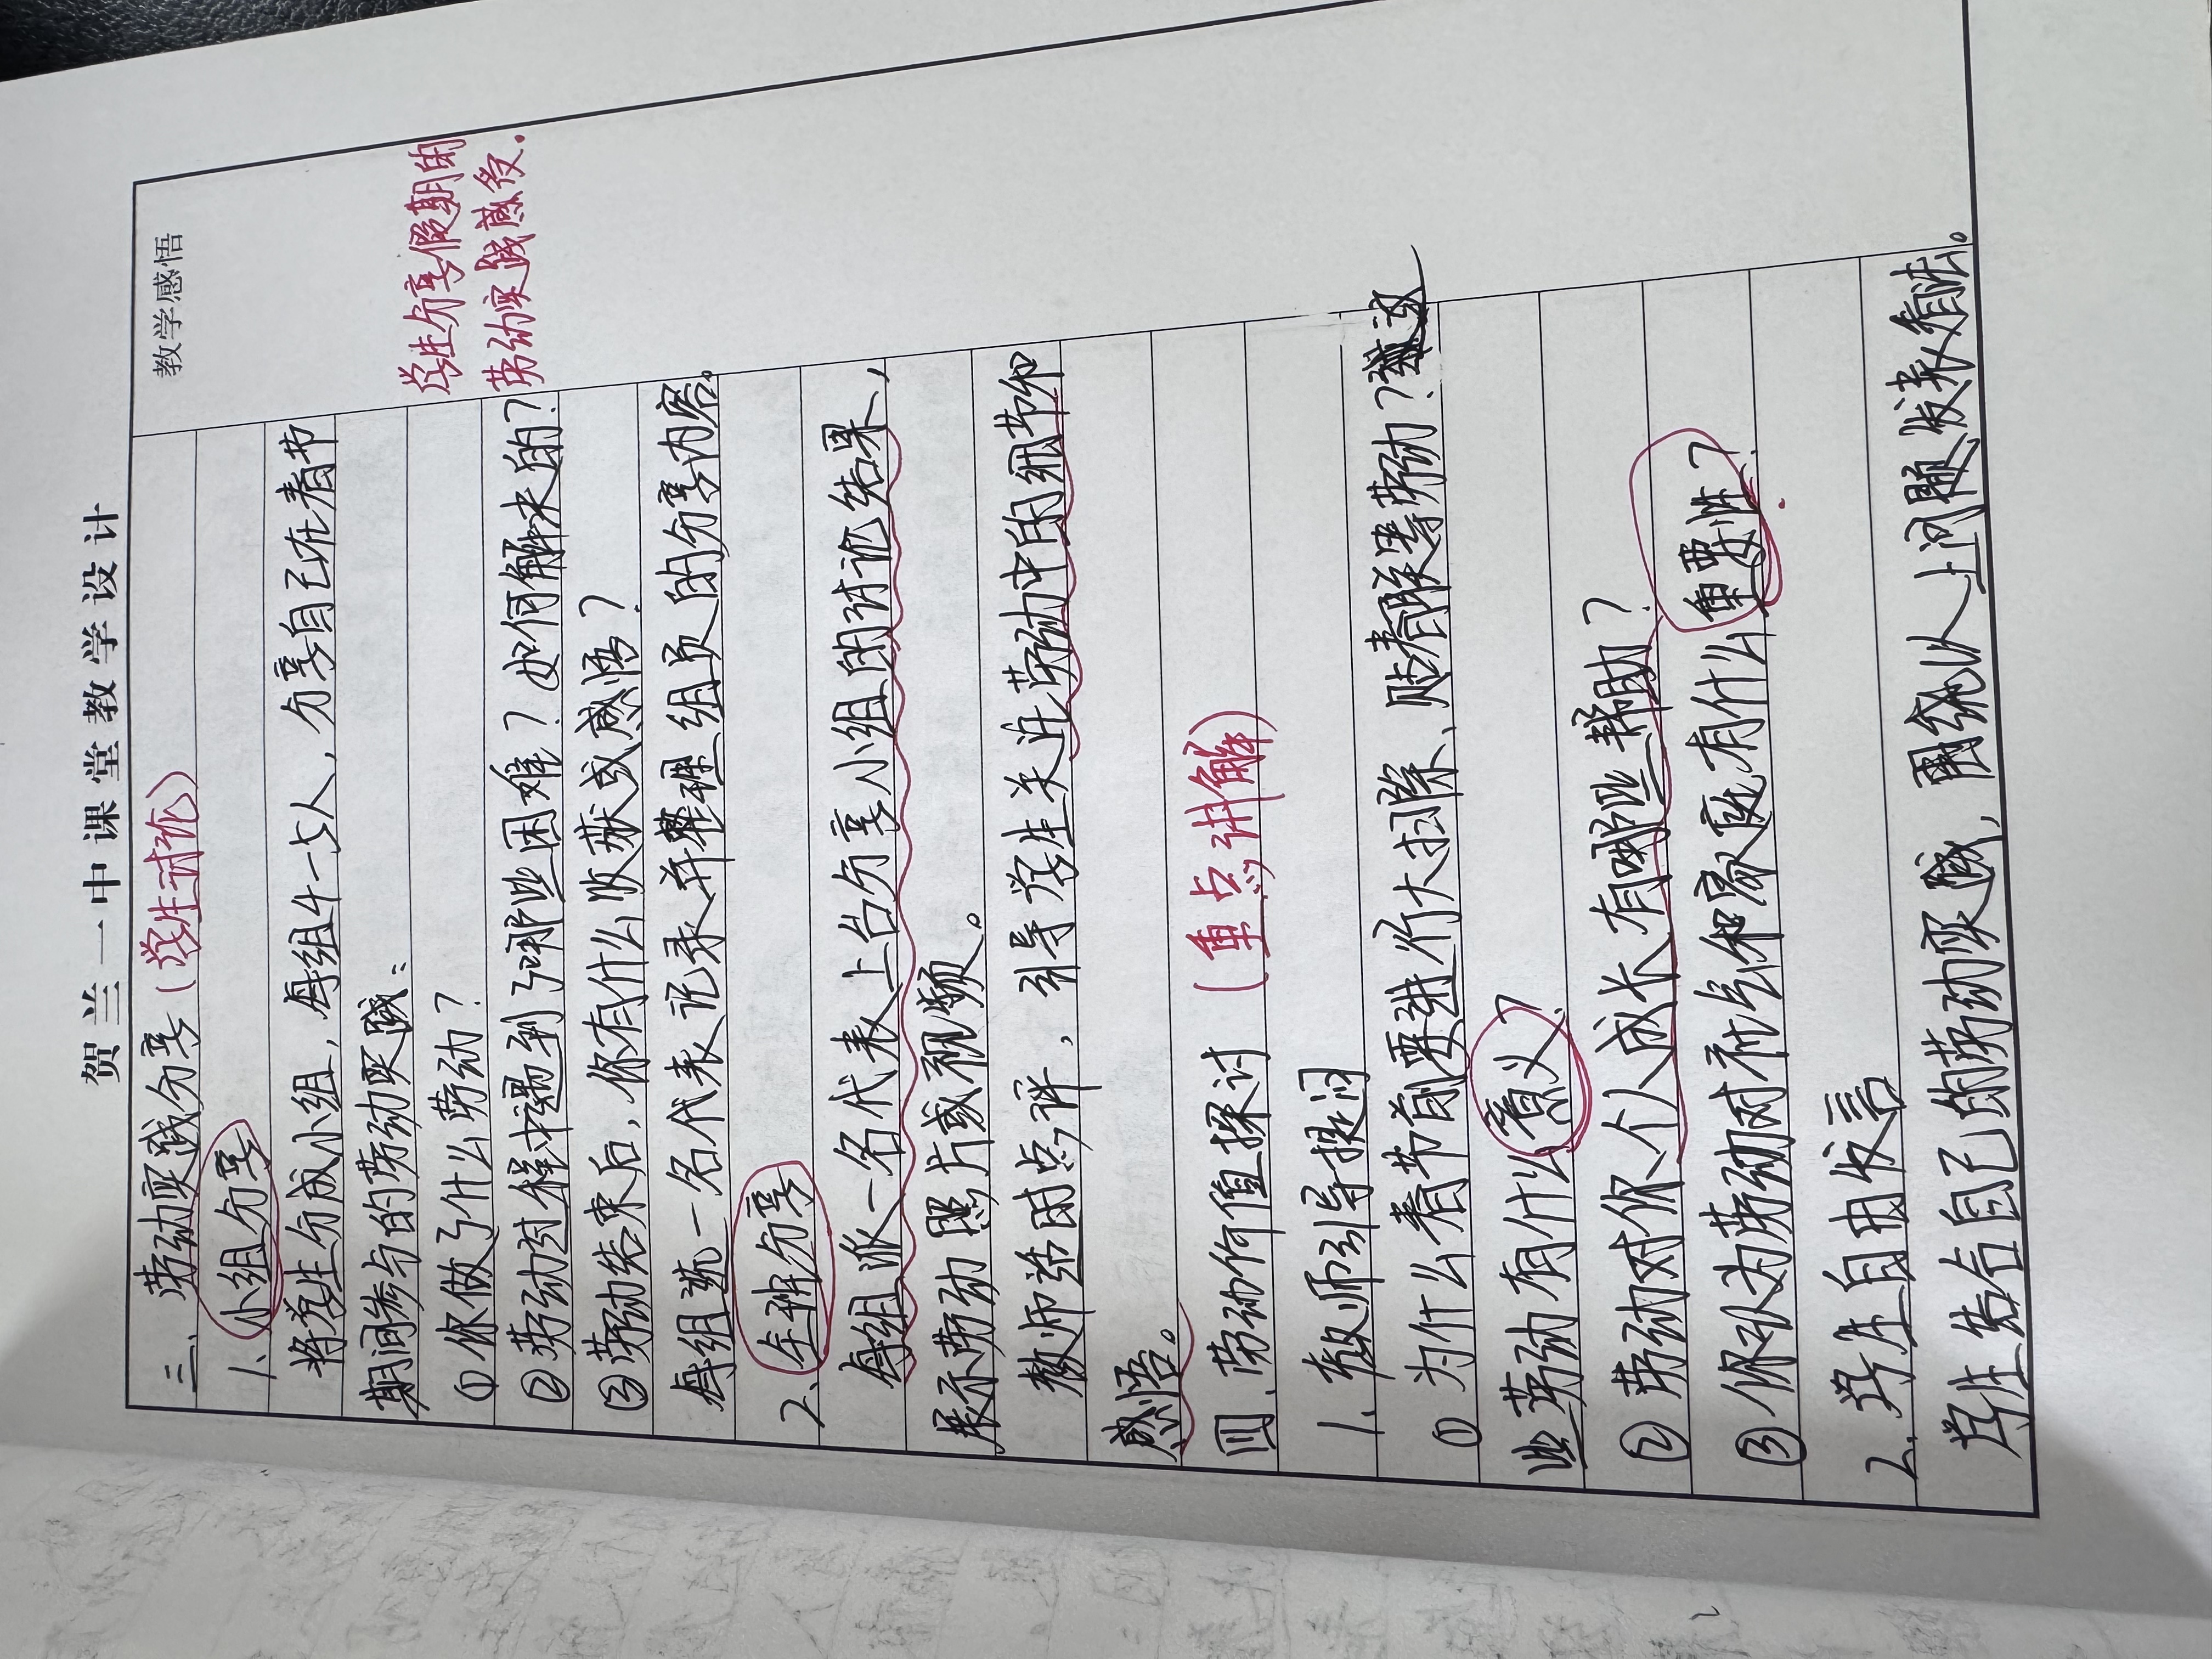 贺兰一中课堂教学设计
教学感悟
三、劳动实践分享（学生讨论）
1、小组分享
将学生分成小组，每组4-5人，分享自己在春节
期间参与的劳动实践：
①你做了什么劳动？
学生分享假期的
②劳动过程中遇到了哪些困难？如何解决的？
劳动实践感受.
③劳动结束后，你有什么收获或感悟？
每组选一名代表记录并整理组员的分享内容。
2、全班分享
每组派一名代表上台分享小组的讨论结果，
展示劳动照片或视频。
教师适时点评，引导学生关注劳动中的细节和
感悟。
四、劳动价值探讨（重点讲解）
1、教师引导提问
①为什么春节前要进行大扫除、贴春联等劳动？这
些劳动有什么意义？
②劳动对你个人成长有哪些帮助？
③你认为劳动对社会和家庭有什么重要性？
2、学生自由发言
学生结合自己的劳动实践，围绕以上问题发表看法。